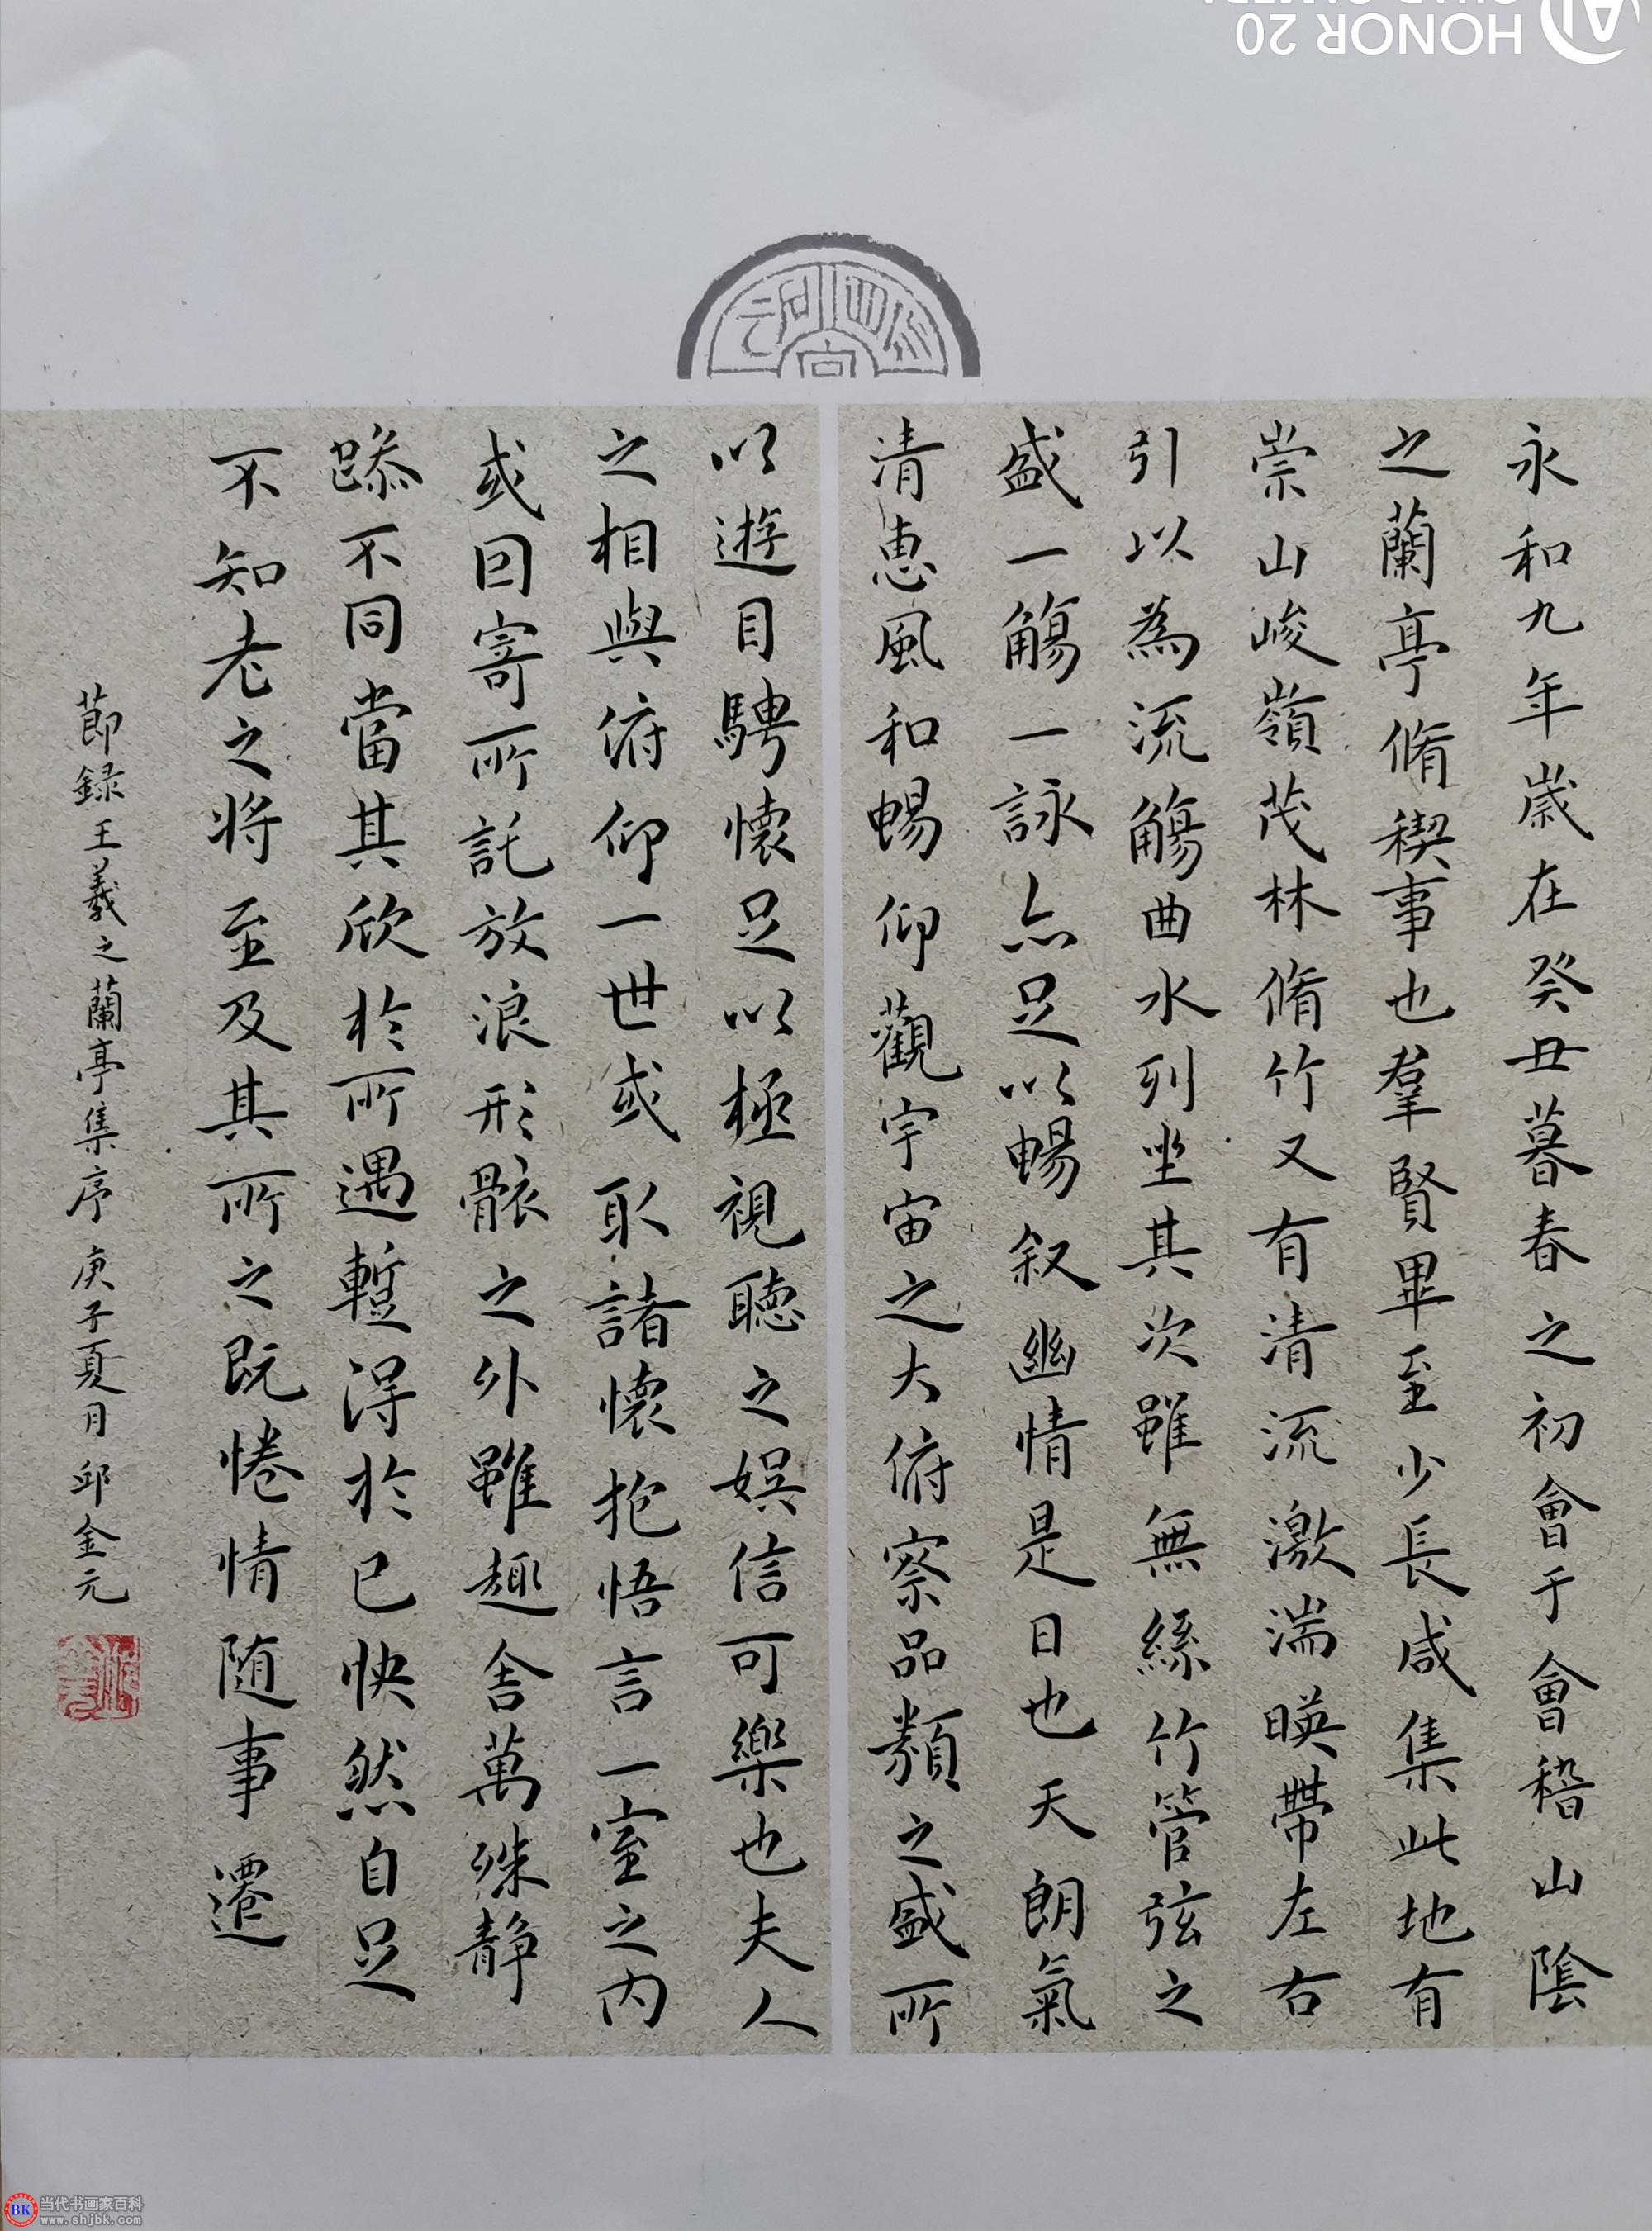 永和九年歲在癸丑暮春之初會于會稽山陰
之蘭亭脩稧事也羣賢畢至少長咸集此地有
崇山峻嶺茂林脩竹又有清流激湍暎帶左右
引以為流觴曲水列坐其次雖無絲竹管弦之
盛一觴一詠亦足以暢叙幽情是日也天朗氣
清惠風和暢仰觀宇宙之大俯察品類之盛所
以遊目騁懷足以極視聽之娛信可樂也夫人
之相與俯仰一世或取諸懷抱悟言一室之内
或因寄所託放浪形骸之外雖趣舎萬殊静
躁不同當其欣於所遇蹔得於己快然自足
不知老之将至及其所之既惓情随事遷
節録王羲之蘭亭集序 庚子夏月 邱金元
HONOR 20
AI QUAD CAMERA
BK 当代书画家百科
www.shjbk.com